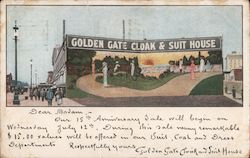 GOLDEN GATE CLOAK & SUIT HOUSE
Dear Madam:-
Our 15th Anniversary Sale will begin on
Wednesday July 12th. During this Sale many remarkable
$15.00 values will be offered in our Suit, Coat and Dress
Departments. Respectfully yours
Golden Gate Cloak & Suit House.